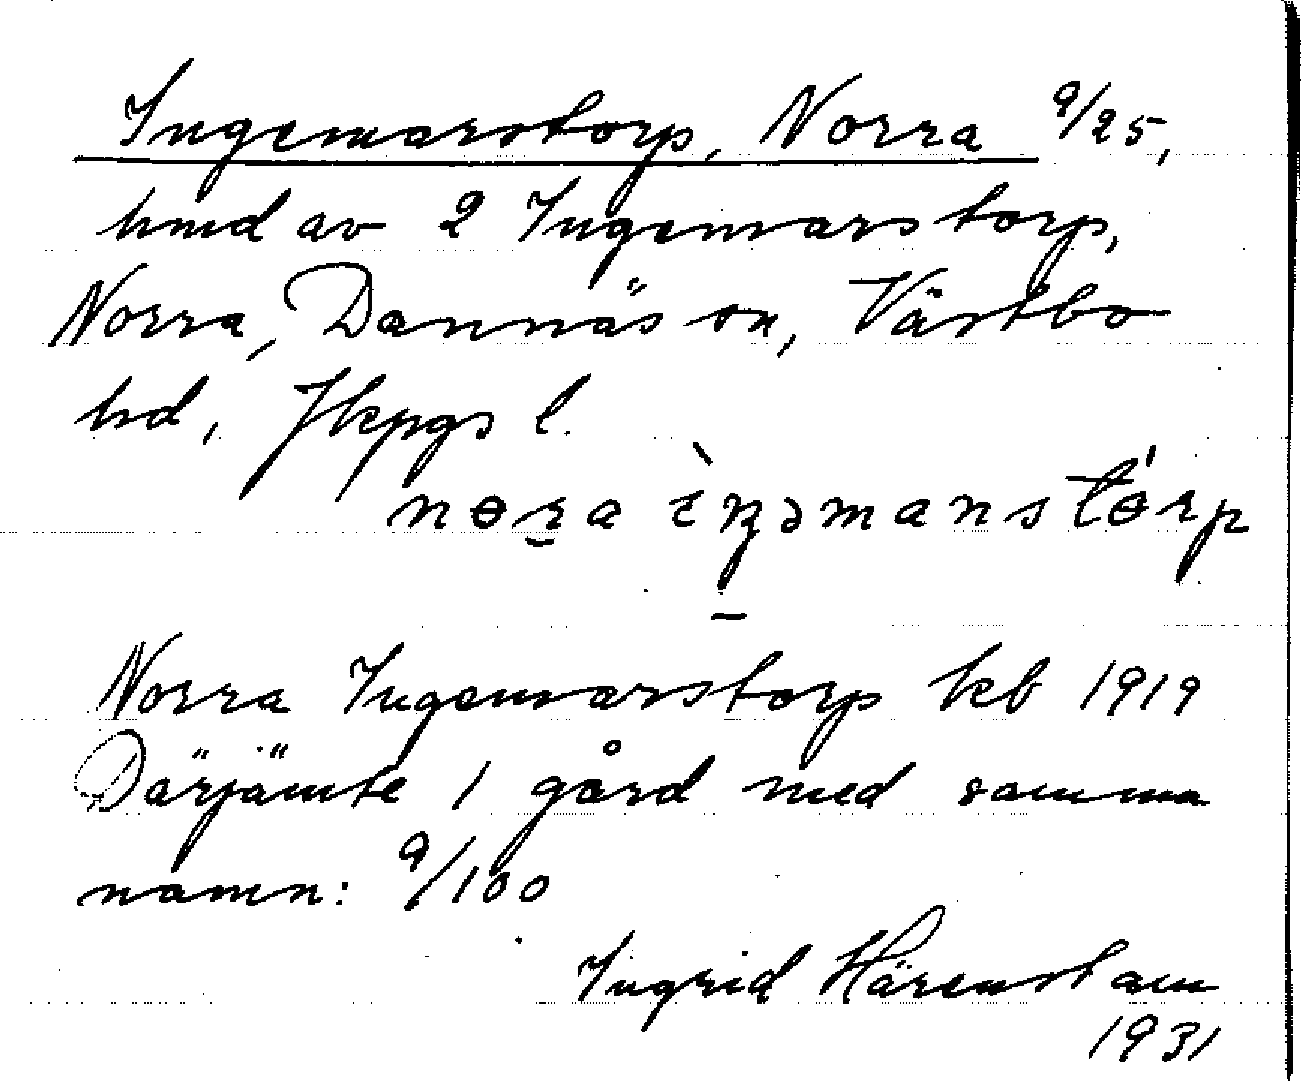 Ingemarstorp, Norra 9/25,
hmd av 2 Ingemarstorp,
Norra, Dannäs sn, Västbo
hd, Jkpgs l.
nɵra ìŋəmanstɵ́rp
Norra Ingemarstorp kb 1919
Därjämte 1 gård med samma
namn: 9/100
Ingrid Härenstam
1931